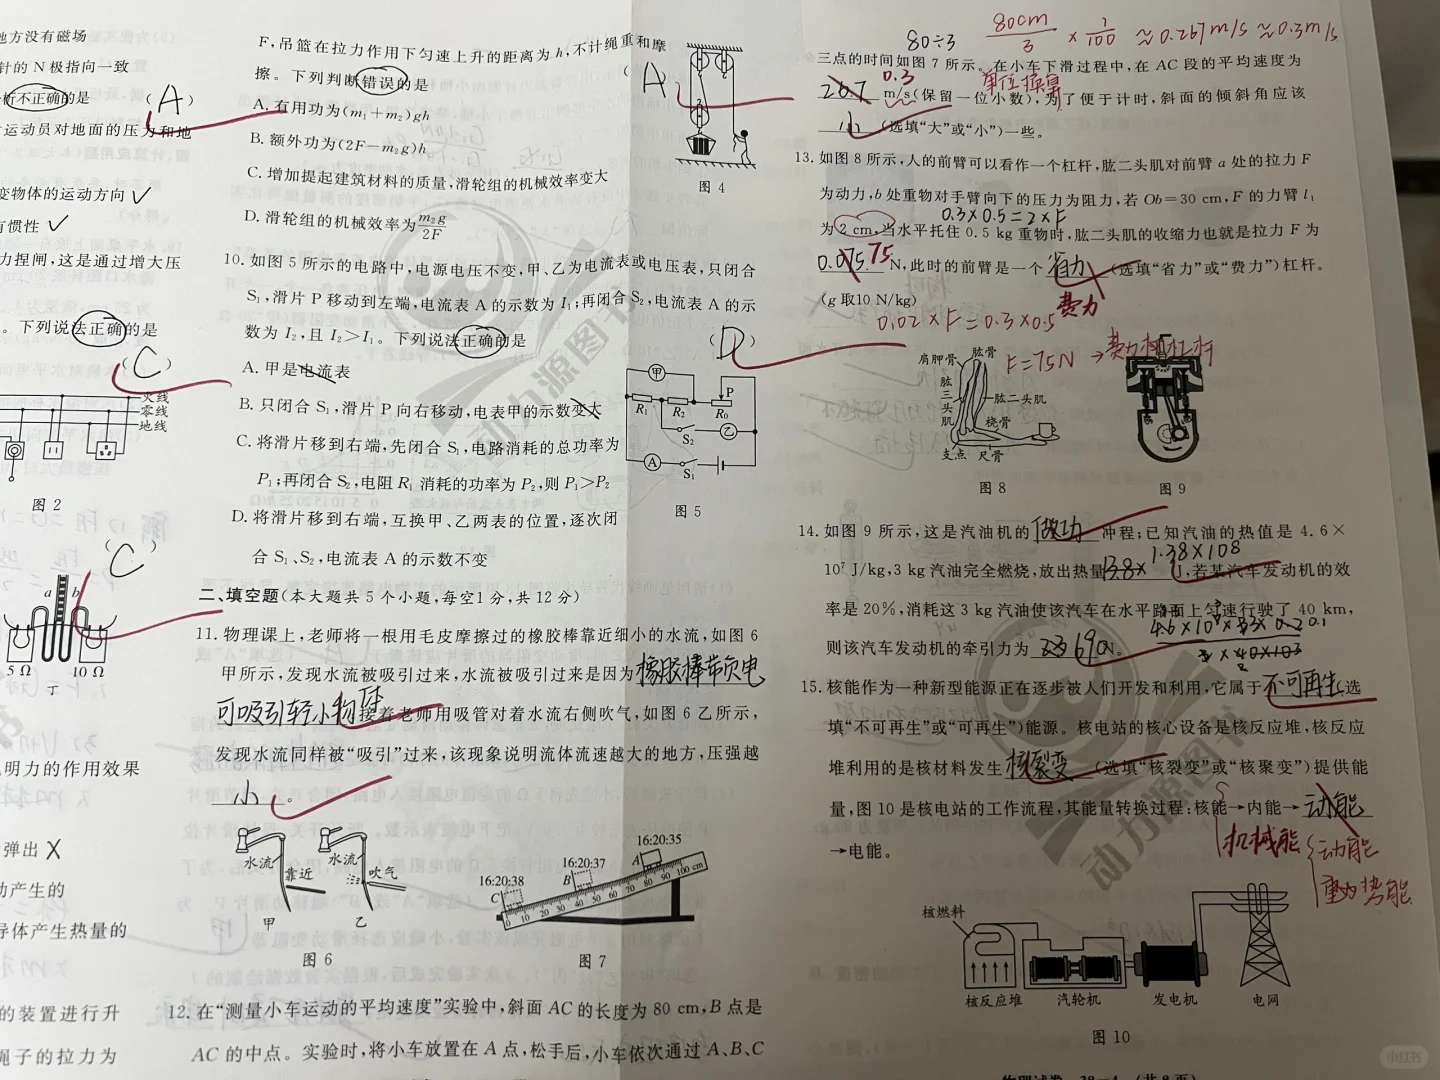 地方没有磁场
针的 N 极指向一致
析不正确的是
(A)
运动员对地面的压力和地
变物体的运动方向 ✓
有惯性 ✓
力捏闸,这是通过增大压
。下列说法正确的是
(C)
火线
零线
地线
图 2
(C)
a b
5 Ω 10 Ω
丁
明力的作用效果
弹出 X
动产生的
导体产生热量的
的装置进行升
绳子的拉力为
F,吊篮在拉力作用下匀速上升的距离为 h,不计绳重和摩
擦。下列判断错误的是
(A)
A. 有用功为(m₁+m₂)gh
B. 额外功为(2F-m₂g)h
C. 增加提起建筑材料的质量,滑轮组的机械效率变大
D. 滑轮组的机械效率为m₂g/2F
图 4
10. 如图 5 所示的电路中,电源电压不变,甲、乙为电流表或电压表,只闭合
S₁,滑片 P 移动到左端,电流表 A 的示数为 I₁;再闭合 S₂,电流表 A 的示
数为 I₂,且 I₂>I₁。下列说法正确的是
(D)
A. 甲是电流表
B. 只闭合 S₁,滑片 P 向右移动,电表甲的示数变大
C. 将滑片移到右端,先闭合 S₁,电路消耗的总功率为
P₁;再闭合 S₂,电阻 R₁ 消耗的功率为 P₂,则 P₁>P₂
D. 将滑片移到右端,互换甲、乙两表的位置,逐次闭
合 S₁、S₂,电流表 A 的示数不变
甲
P
R₁ R₂ R₀
S₂ 乙
A S₁
图 5
二、填空题(本大题共 5 个小题,每空1 分,共 12 分)
11. 物理课上,老师将一根用毛皮摩擦过的橡胶棒靠近细小的水流,如图 6
甲所示,发现水流被吸引过来,水流被吸引过来是因为橡胶棒带负电
可吸引轻小物体接着老师用吸管对着水流右侧吹气,如图 6 乙所示,
发现水流同样被“吸引”过来,该现象说明流体流速越大的地方,压强越
小。
水流 靠近
甲
水流 吹气
乙
图 6
16:20:35
16:20:37
16:20:38
A
B
C
0 10 20 30 40 50 60 70 80 90 100 cm
图 7
12. 在“测量小车运动的平均速度”实验中,斜面 AC 的长度为 80 cm,B 点是
AC 的中点。实验时,将小车放置在 A 点,松手后,小车依次通过 A、B、C
80÷3
80cm/3 × 1/100 ≈0.267m/s ≈0.3m/s
三点的时间如图 7 所示。在小车下滑过程中,在 AC 段的平均速度为
0.3
单位换算
26.7 m/s(保留一位小数),为了便于计时,斜面的倾斜角应该
小(选填“大”或“小”)一些。
13. 如图 8 所示,人的前臂可以看作一个杠杆,肱二头肌对前臂 a 处的拉力 F
为动力,b 处重物对手臂向下的压力为阻力,若 Ob=30 cm,F 的力臂 l₁
0.3×0.5=2×F
为 2 cm,当水平托住 0.5 kg 重物时,肱二头肌的收缩力也就是拉力 F 为
0.075 75 N,此时的前臂是一个 省力 (选填“省力”或“费力”)杠杆。
(g 取10 N/kg)
费力
0.02×F=0.3×0.5
F=75N →费力杠杆
肩胛骨 肱骨
肱三头肌
肱二头肌
桡骨
支点 尺骨
图 8
图 9
14. 如图 9 所示,这是汽油机的 做功 冲程;已知汽油的热值是 4.6×
1.38×10⁸
10⁷ J/kg,3 kg 汽油完全燃烧,放出热量13.8× J,若某汽车发动机的效
率是 20%,消耗这 3 kg 汽油使该汽车在水平路面上匀速行驶了 40 km,
则该汽车发动机的牵引力为 690 N。
15. 核能作为一种新型能源正在逐步被人们开发和利用,它属于 不可再生(选
填“不可再生”或“可再生”)能源。核电站的核心设备是核反应堆,核反应
堆利用的是核材料发生 核裂变 (选填“核裂变”或“核聚变”)提供能
量,图 10 是核电站的工作流程,其能量转换过程:核能→内能→ 动能
→电能。
机械能
动能
重力势能
核燃料
核反应堆 汽轮机 发电机 电网
图 10
动力源图书
动力源图书
小红书